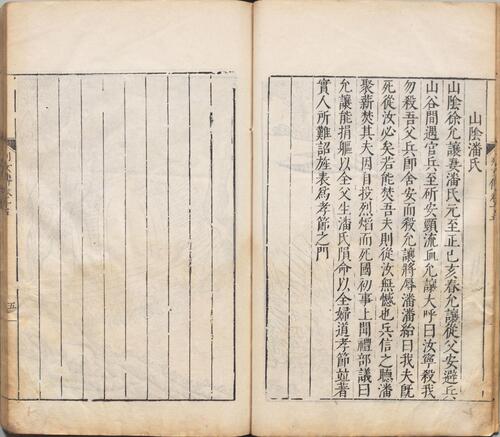 山陰潘氏
山陰徐允讓妻潘氏元至正己亥春允讓從父安避兵
山谷間遇官兵至斫安頸流血允讓大呼曰汝寧殺我
勿殺吾父兵即舍安而殺允讓將辱潘潘紿曰我夫既
死從汝必矣若能焚吾夫則從汝無憾也兵信之聽潘
聚薪焚其夫因自投烈焰而死國初事上聞禮部議曰
允讓能捐軀以全父生潘氏隕命以全婦道孝節並著
實人所難詔旌表為孝節之門
五